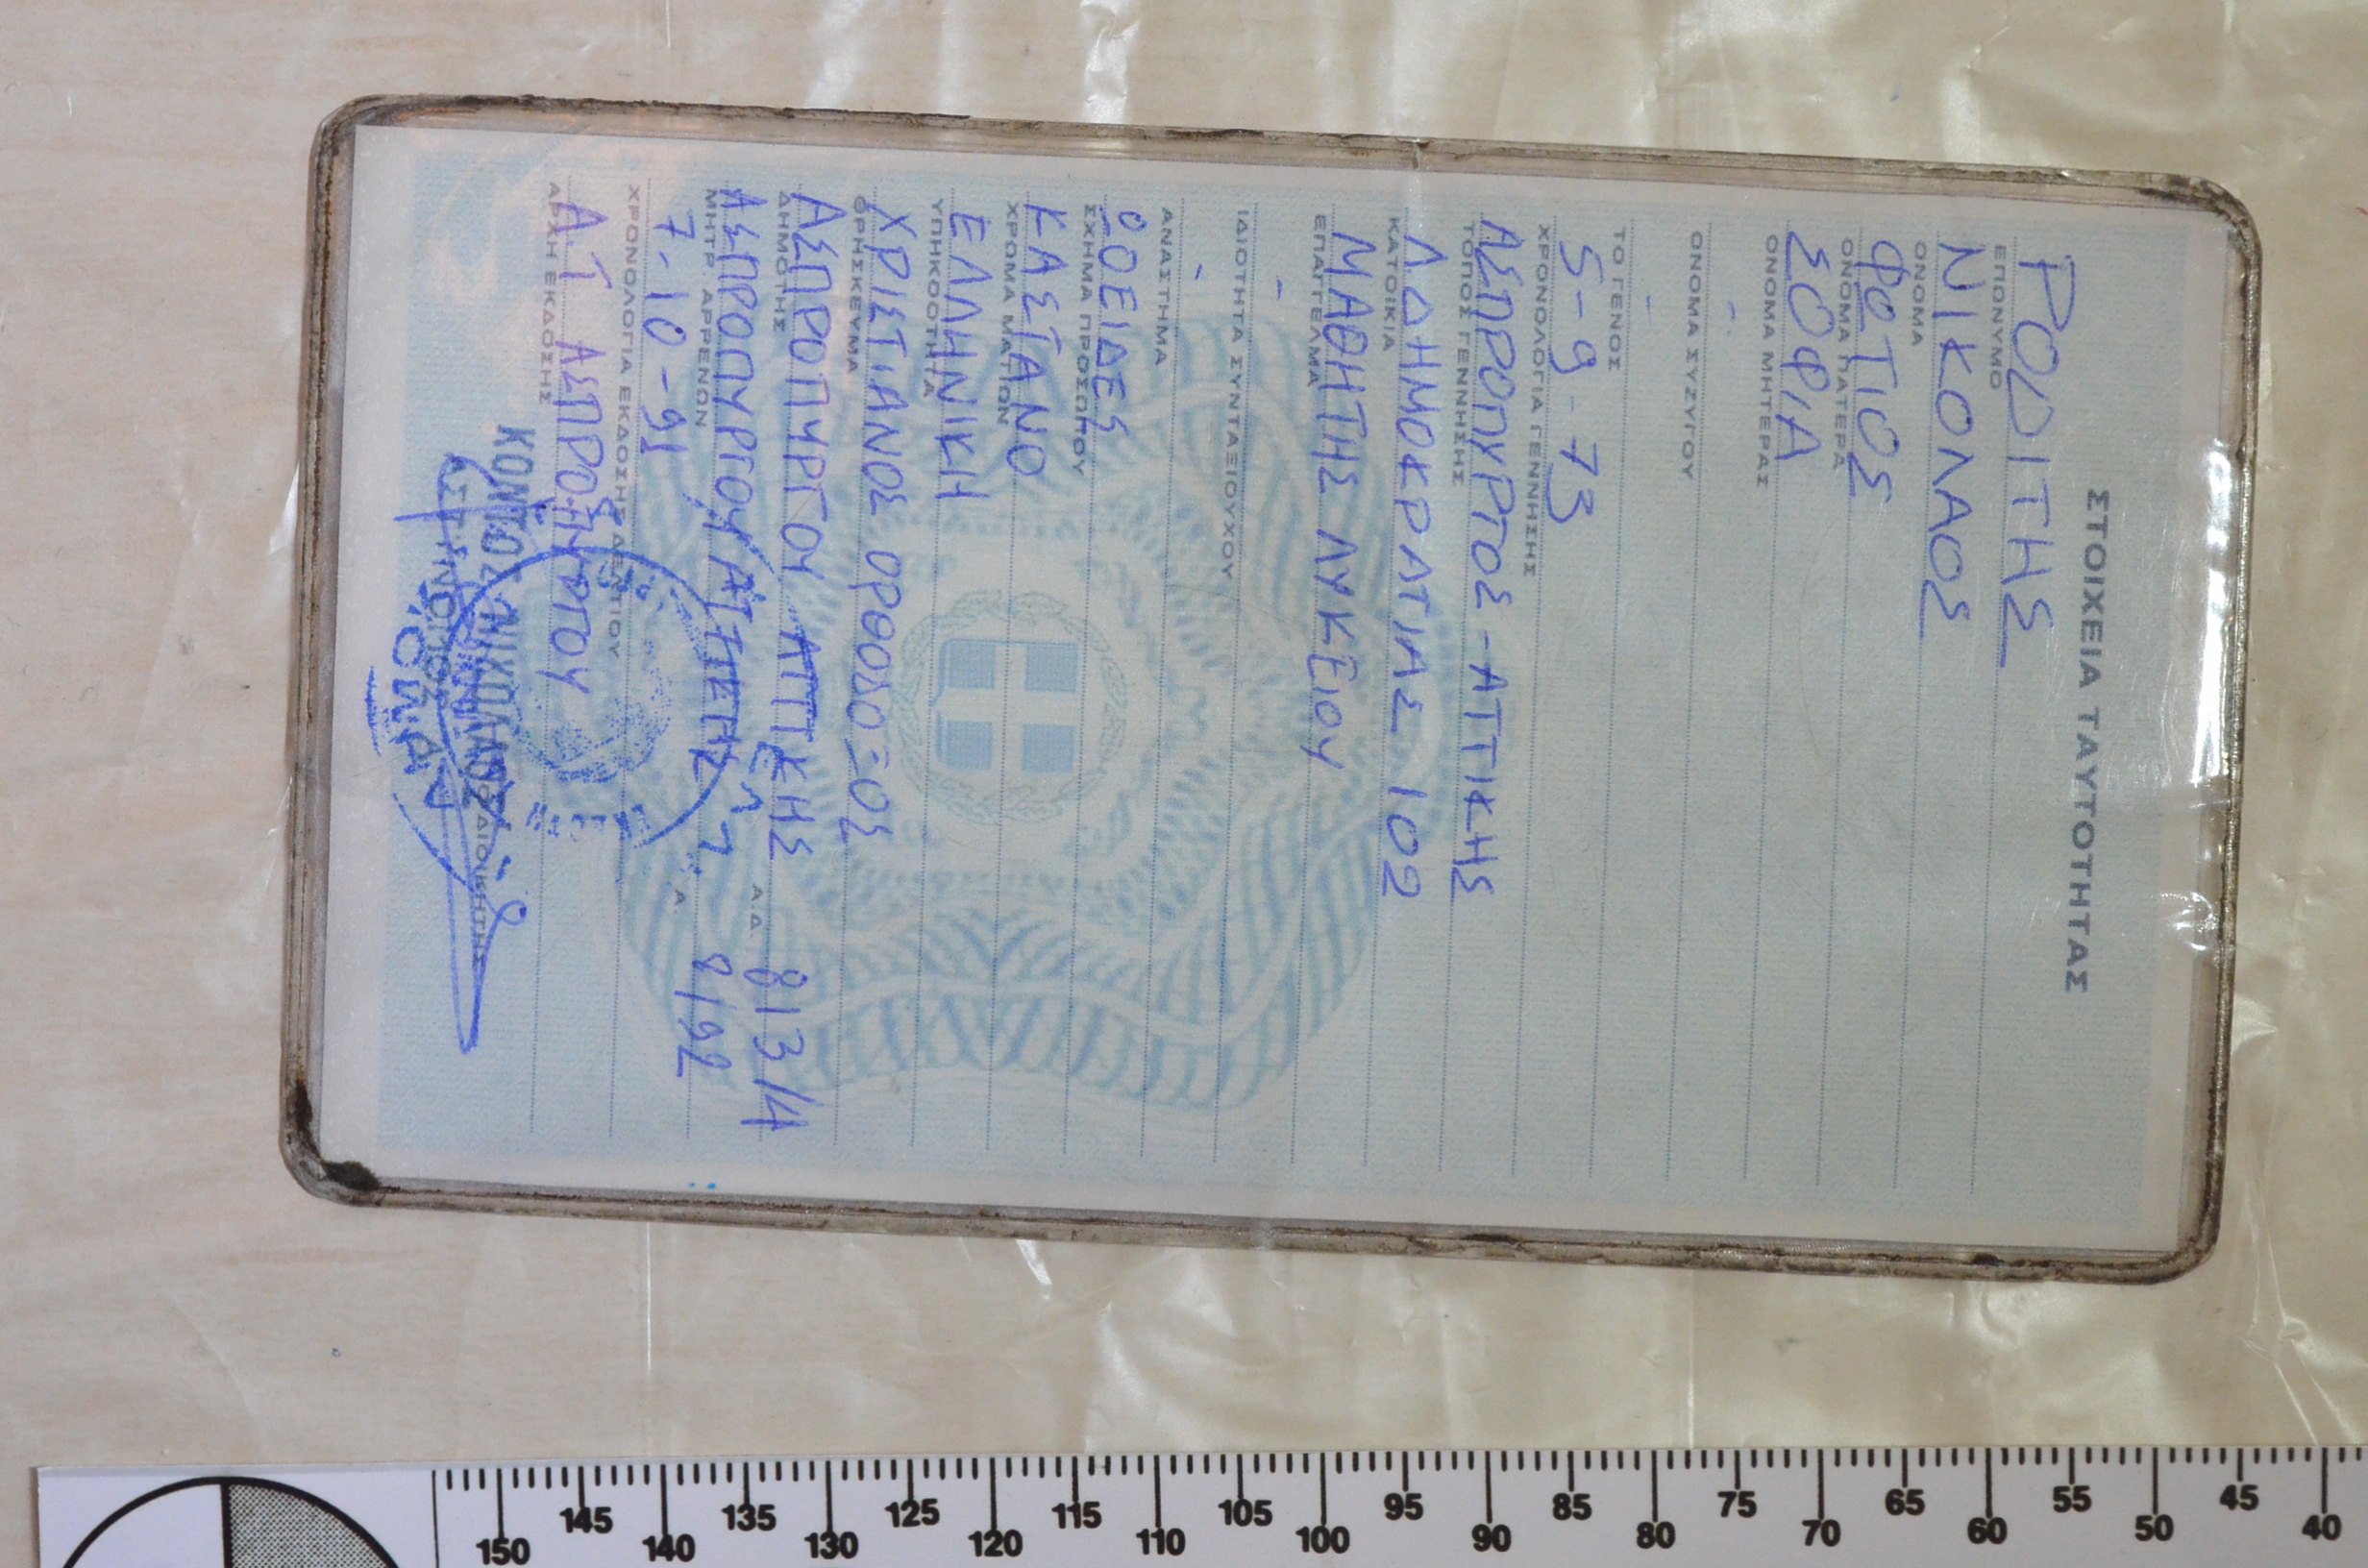 ΣΤΟΙΧΕΙΑ ΤΑΥΤΟΤΗΤΑΣ
ΡΟΔΙΤΗΣ
ΕΠΩΝΥΜΟ
ΝΙΚΟΛΑΟΣ
ΟΝΟΜΑ
ΦΩΤΙΟΣ
ΟΝΟΜΑ ΠΑΤΕΡΑ
ΣΟΦΙΑ
ΟΝΟΜΑ ΜΗΤΕΡΑΣ
-
ΟΝΟΜΑ ΣΥΖΥΓΟΥ
-
ΤΟ ΓΕΝΟΣ
5-9-73
ΧΡΟΝΟΛΟΓΙΑ ΓΕΝΝΗΣΗΣ
ΑΣΠΡΟΠΥΡΓΟΣ - ΑΤΤΙΚΗΣ
ΤΟΠΟΣ ΓΕΝΝΗΣΗΣ
ΔΗΜΟΚΡΑΤΙΑΣ 102
ΚΑΤΟΙΚΙΑ
ΜΑΘΗΤΗΣ ΛΥΚΕΙΟΥ
ΕΠΑΓΓΕΛΜΑ
-
ΙΔΙΟΤΗΤΑ ΣΥΝΤΑΞΙΟΥΧΟΥ
-
ΑΝΑΣΤΗΜΑ
ΩΟΕΙΔΕΣ
ΣΧΗΜΑ ΠΡΟΣΩΠΟΥ
ΚΑΣΤΑΝΟ
ΧΡΩΜΑ ΜΑΤΙΩΝ
ΕΛΛΗΝΙΚΗ
ΥΠΗΚΟΟΤΗΤΑ
ΧΡΙΣΤΙΑΝΟΣ ΟΡΘΟΔΟΞΟΣ
ΘΡΗΣΚΕΥΜΑ
ΑΣΠΡΟΠΥΡΓΟΥ ΑΤΤΙΚΗΣ Α.Δ. 813/4
ΔΗΜΟΤΗΣ
ΑΣΠΡΟΠΥΡΓΟΥ Α. 8/92
ΜΗΤΡ. ΑΡΡΕΝΩΝ
7-10-91
ΧΡΟΝΟΛΟΓΙΑ ΕΚΔΟΣΗΣ ΔΕΛΤΙΟΥ
Α.Τ ΑΣΠΡΟΠΥΡΓΟΥ
ΑΡΧΗ ΕΚΔΟΣΗΣ
ΚΟΝΤΟΣ ΝΙΚΟΛΑΟΣ
ΔΙΟΙΚΗΤΗΣ
150 145 140 135 130 125 120 115 110 105 100 95 90 85 80 75 70 65 60 55 50 45 40